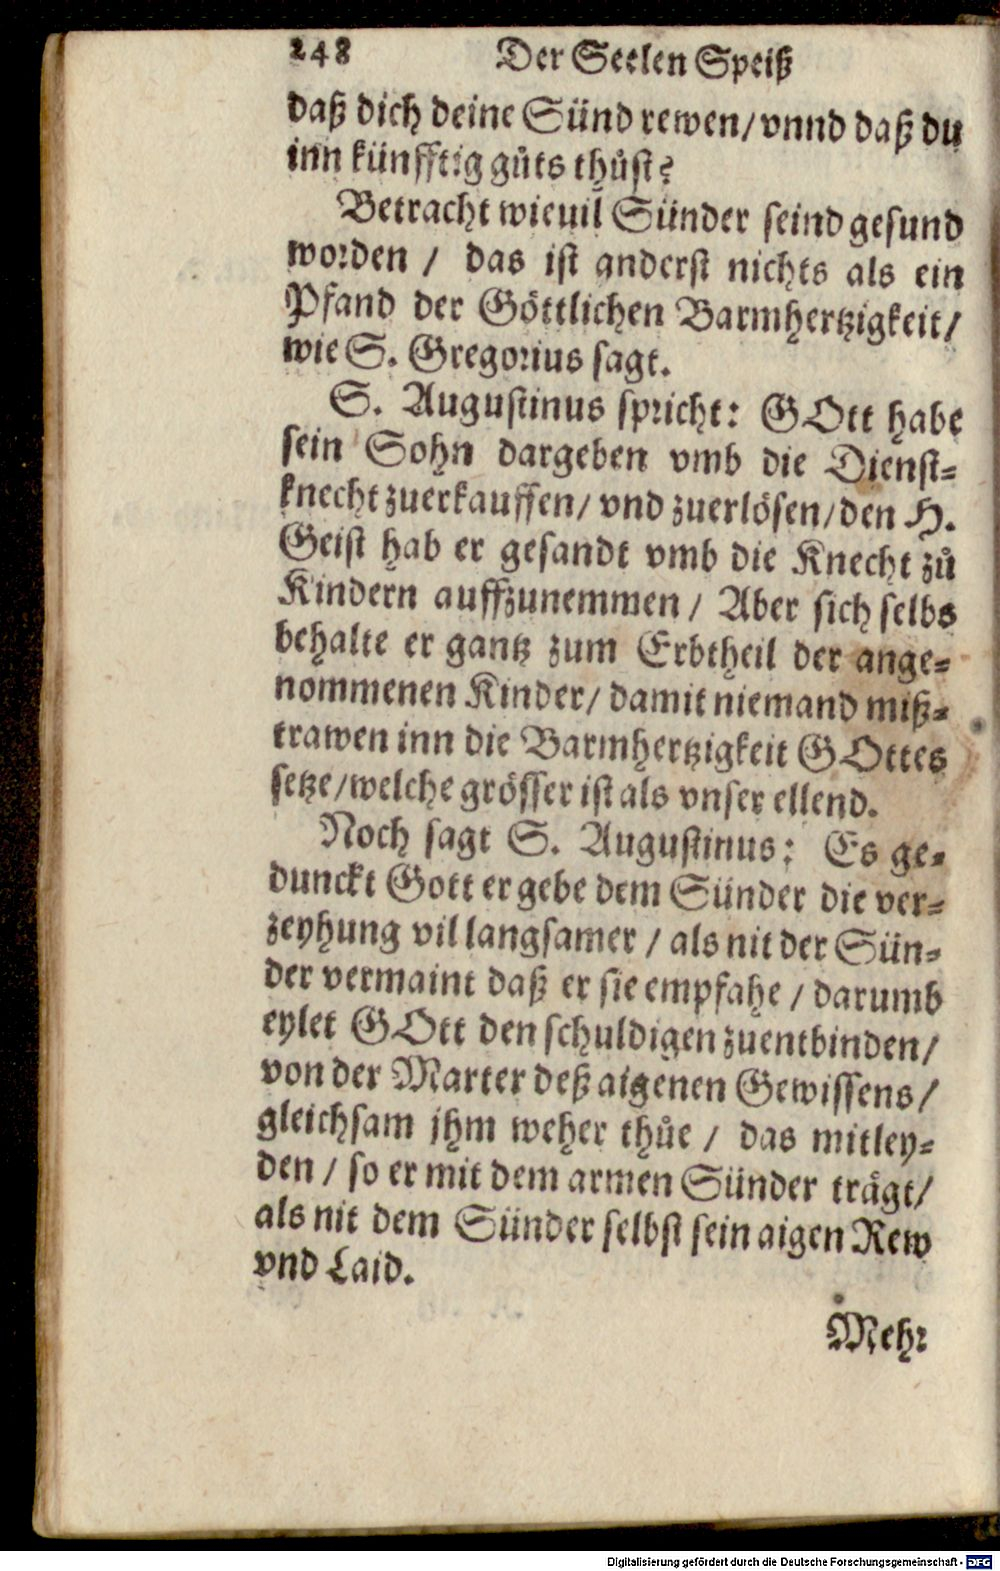 248 Der Seelen Speiß
daß dich deine Sünd rewen/ vnnd daß du
inn künfftig gůts thůst?
Betracht wieuil Sünder seind gesund
worden / das ist anderst nichts als ein
Pfand der Göttlichen Barmhertzigkeit/
wie S. Gregorius sagt.
S. Augustinus spricht: GOtt habe
sein Sohn dargeben vmb die Dienst-
knecht zuerkauffen/ vnd zuerlösen/ den H.
Geist hab er gesandt vmb die Knecht zů
Kindern auffzunemmen / Aber sich selbs
behalte er gantz zum Erbtheil der ange-
nommenen Kinder/ damit niemand miß-
trawen inn die Barmhertzigkeit GOttes
setze/ welche grösser ist als vnser ellend.
Noch sagt S. Augustinus: Es ge-
dunckt Gott er gebe dem Sünder die ver-
zeyhung vil langsamer / als nit der Sün-
der vermaint daß er sie empfahe / darumb
eylet GOtt den schuldigen zuentbinden/
von der Marter deß aigenen Gewissens/
gleichsam jhm weher thůe / das mitley-
den / so er mit dem armen Sünder trägt/
als nit dem Sünder selbst sein aigen Rew
vnd Laid.
Mehr
Digitalisierung gefördert durch die Deutsche Forschungsgemeinschaft - DFG